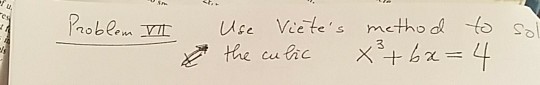 Problem VII Use Viète's method to sol
the cubic x³ + 6x = 4